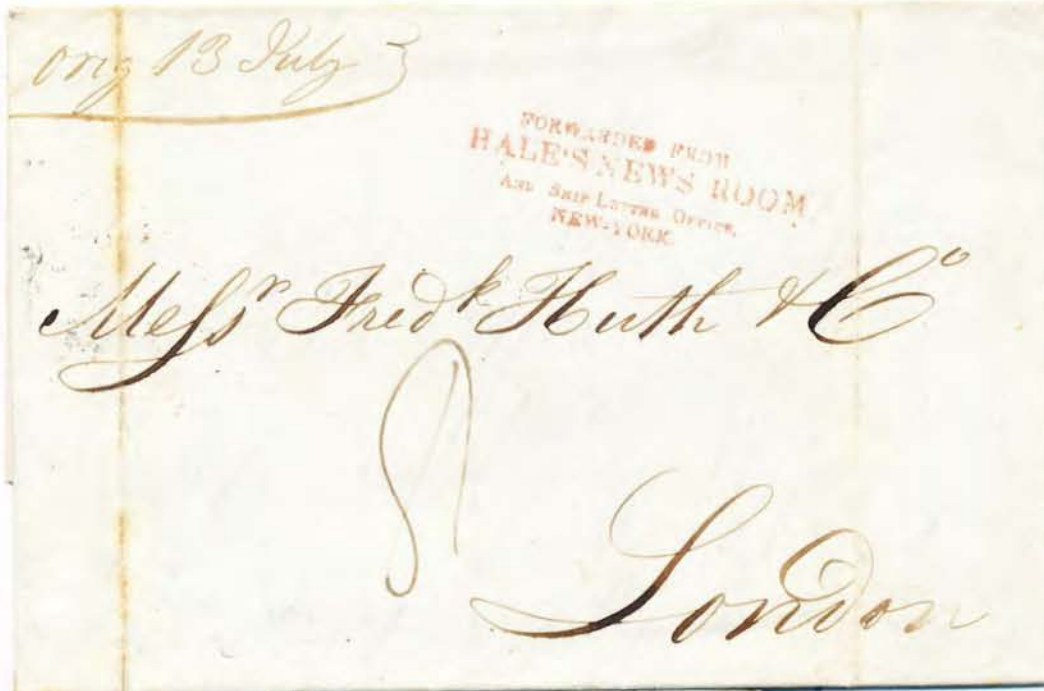 orig 13 July
FORWARDED FROM
HALE'S NEWS ROOM
AND SHIP LETTER OFFICE,
NEW-YORK.
Messrs Fredk Huth & Co
8
London